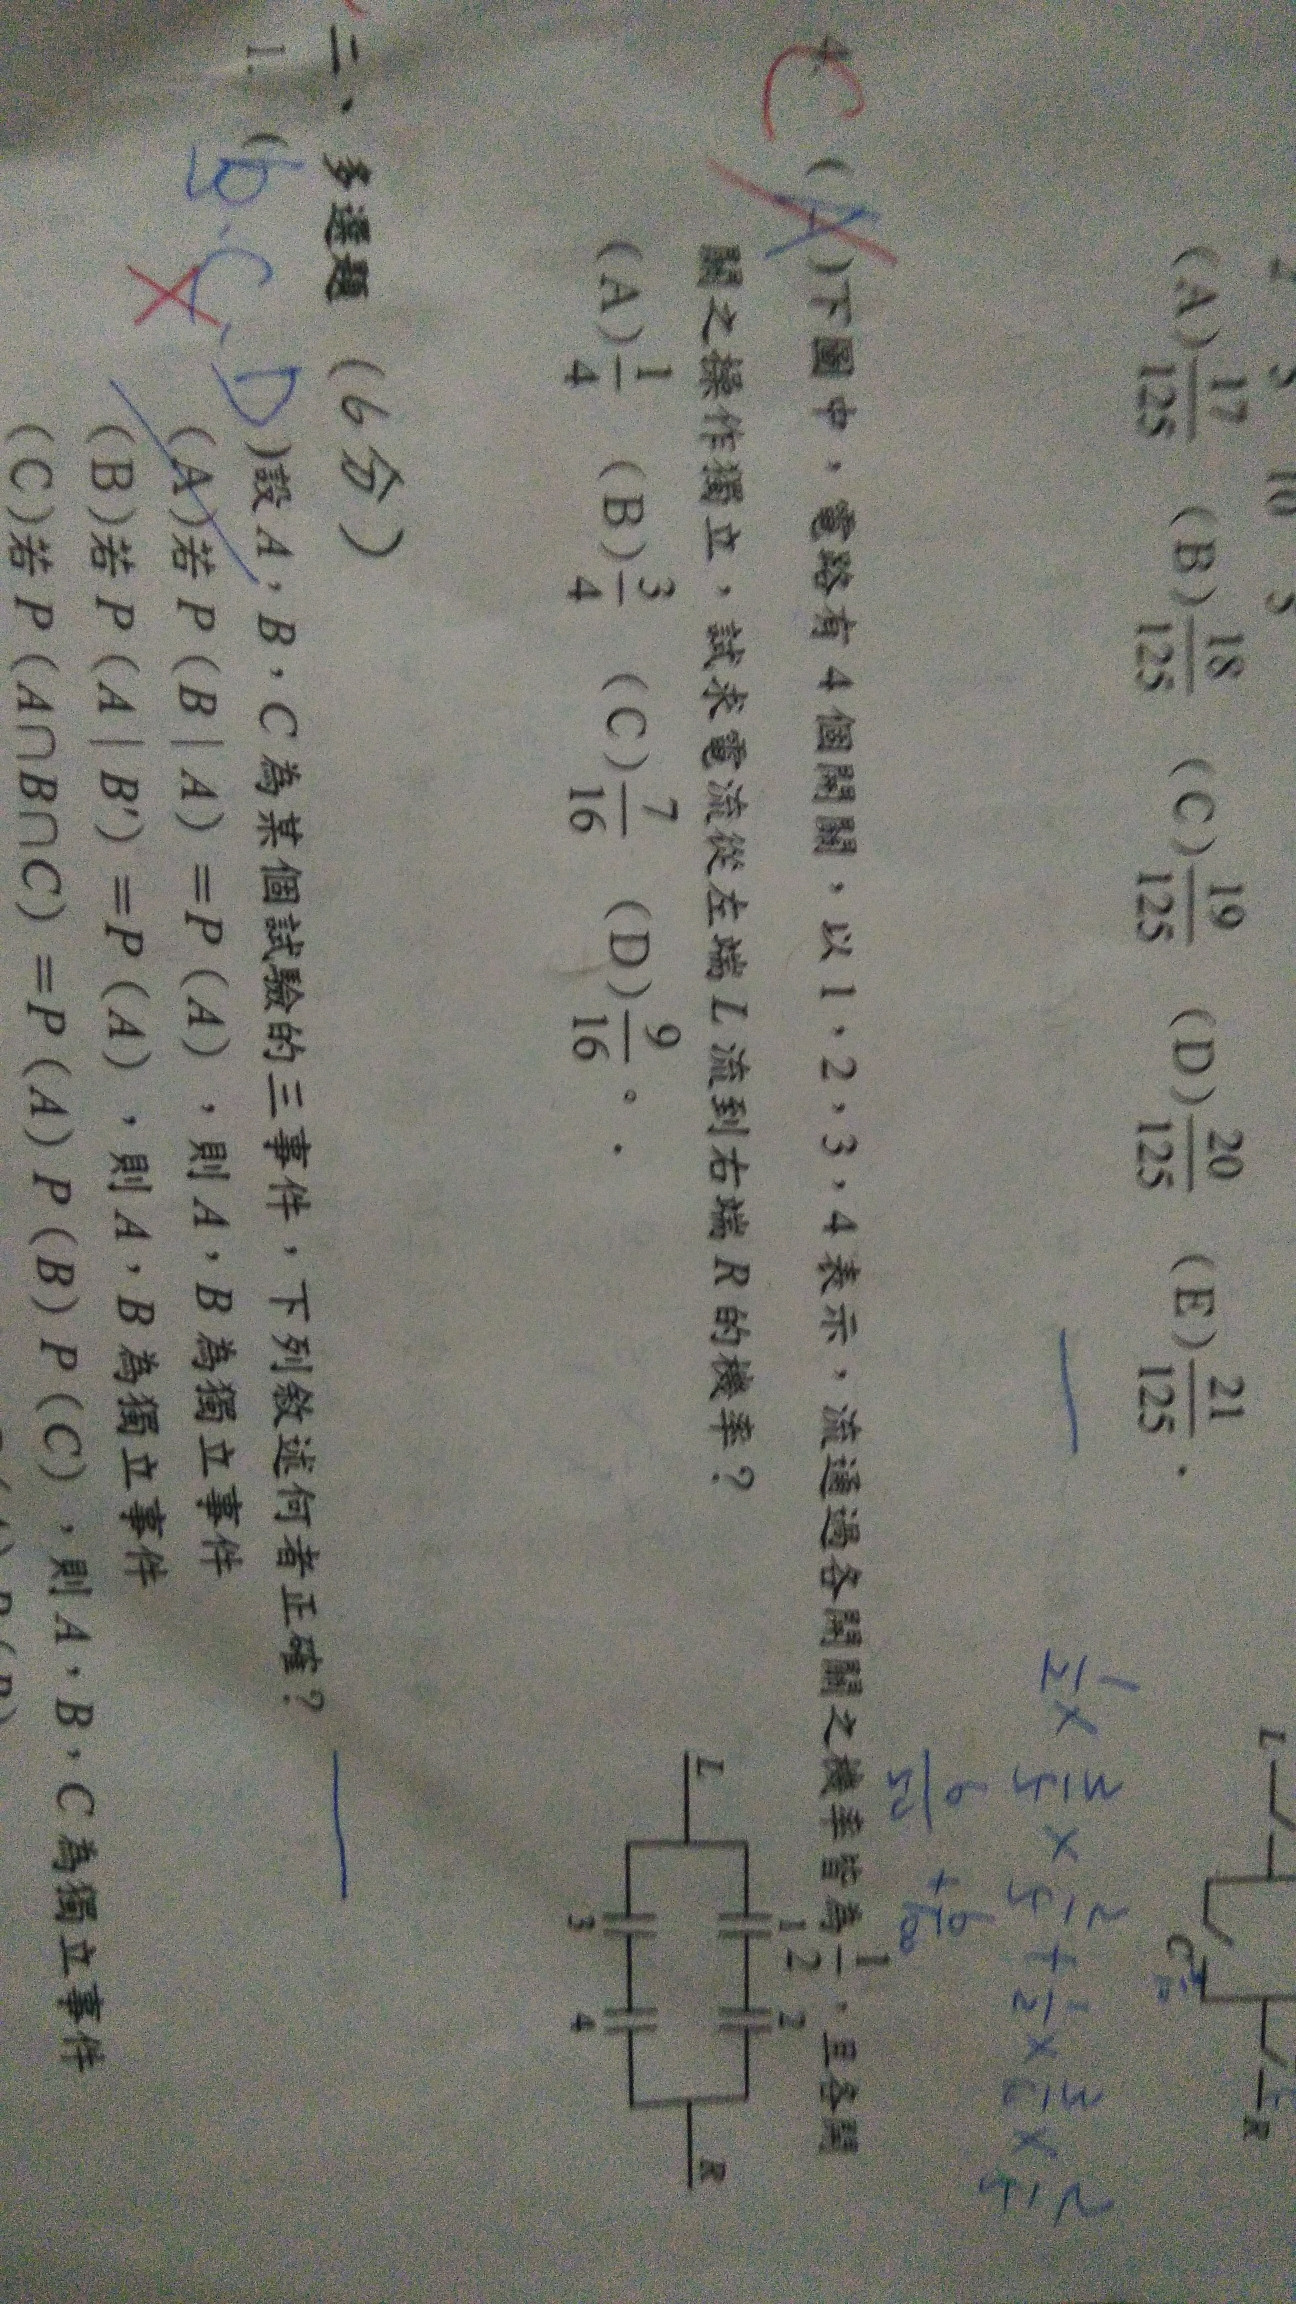 (A) 17/125 (B) 18/125 (C) 19/125 (D) 20/125 (E) 21/125 .
L
C
R
1/2 × 3/5 × 2/5 + 1/2 × 3/6 × 2/4
C
4. (A)下圖中，電路有4個開關，以1，2，3，4表示，流通過各開關之機率皆為1/2，且各開
關之操作獨立，試求電流從左端L流到右端R的機率？
(A) 1/4 (B) 3/4 (C) 7/16 (D) 9/16 。.
L
1
2
3
4
R
二、多選題 (6分)
1. (B、C、D)設A，B，C為某個試驗的三事件，下列敘述何者正確？
(A)若P(B|A)=P(A)，則A，B為獨立事件
(B)若P(A|B')=P(A)，則A，B為獨立事件
(C)若P(A∩B∩C)=P(A)P(B)P(C)，則A，B，C為獨立事件